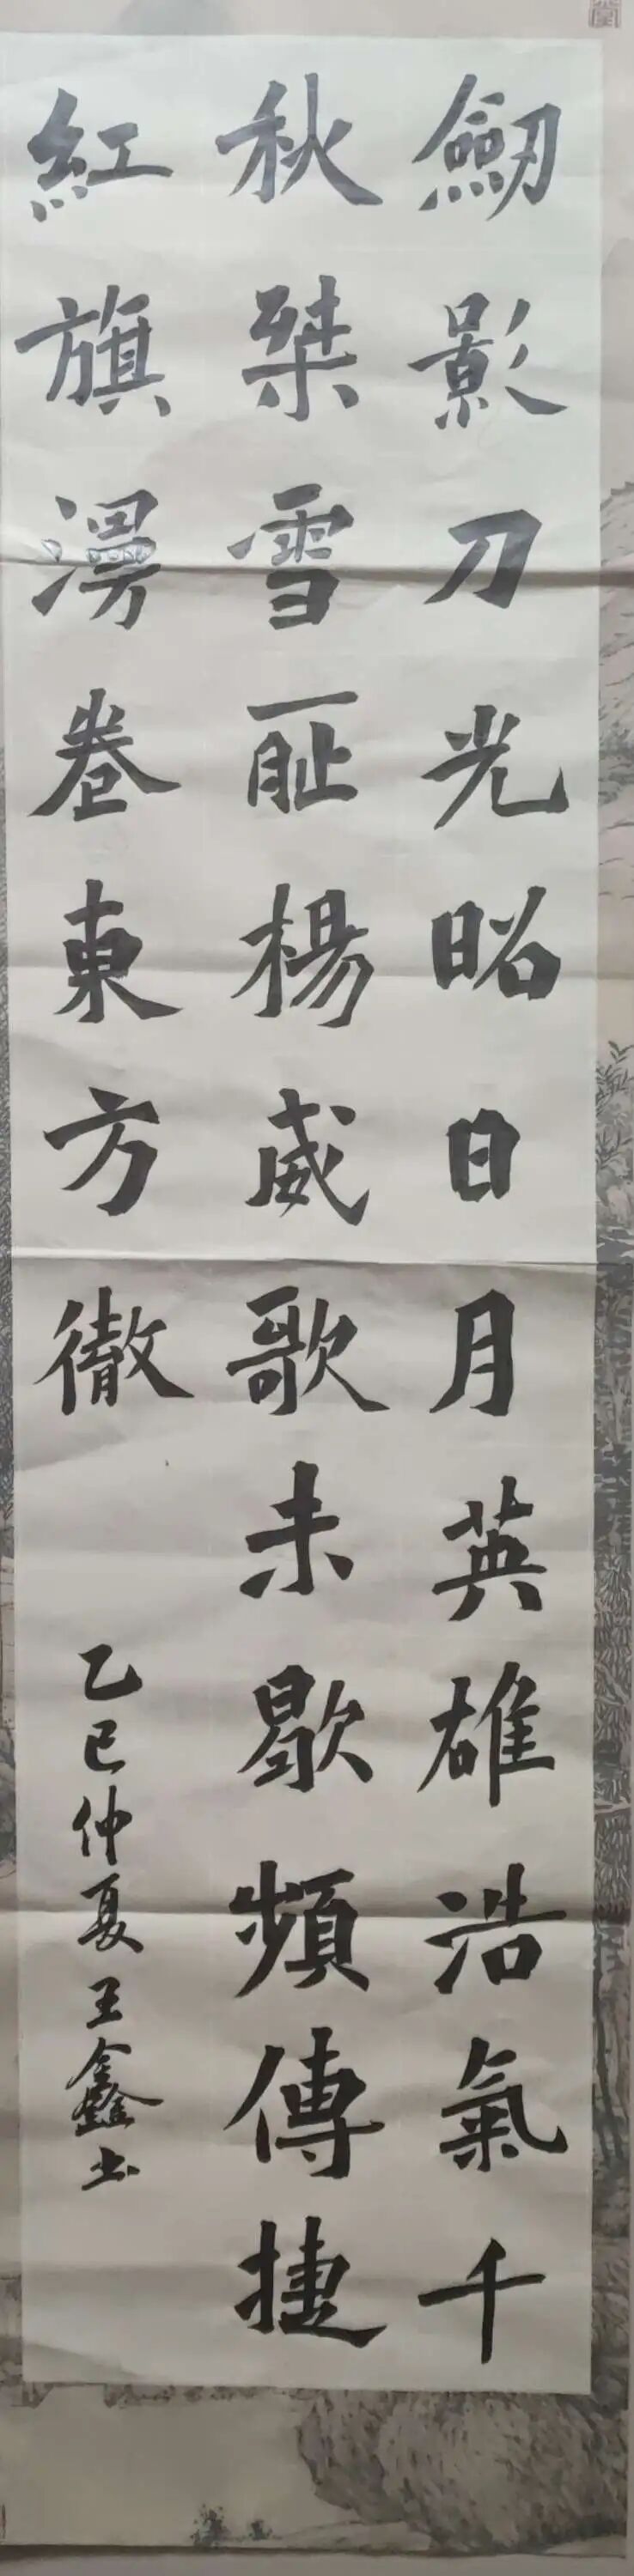 劒影刀光昭日月英雄浩氣千
秋桀雪耻楊威歌未歇頻傳捷
紅旗漫卷東方徹
乙巳仲夏王鑫书